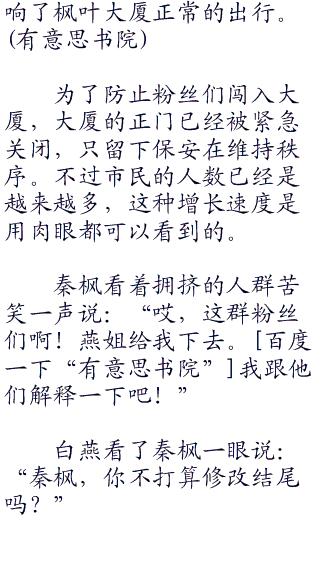 响了枫叶大厦正常的出行。
(有意思书院)
为了防止粉丝们闯入大
厦，大厦的正门已经被紧急
关闭，只留下保安在维持秩
序。不过市民的人数已经是
越来越多，这种增长速度是
用肉眼都可以看到的。
秦枫看着拥挤的人群苦
笑一声说：“哎，这群粉丝
们啊！燕姐给我下去。[百度
一下“有意思书院”]我跟他
们解释一下吧！”
白燕看了秦枫一眼说：
“秦枫，你不打算修改结尾
吗？”